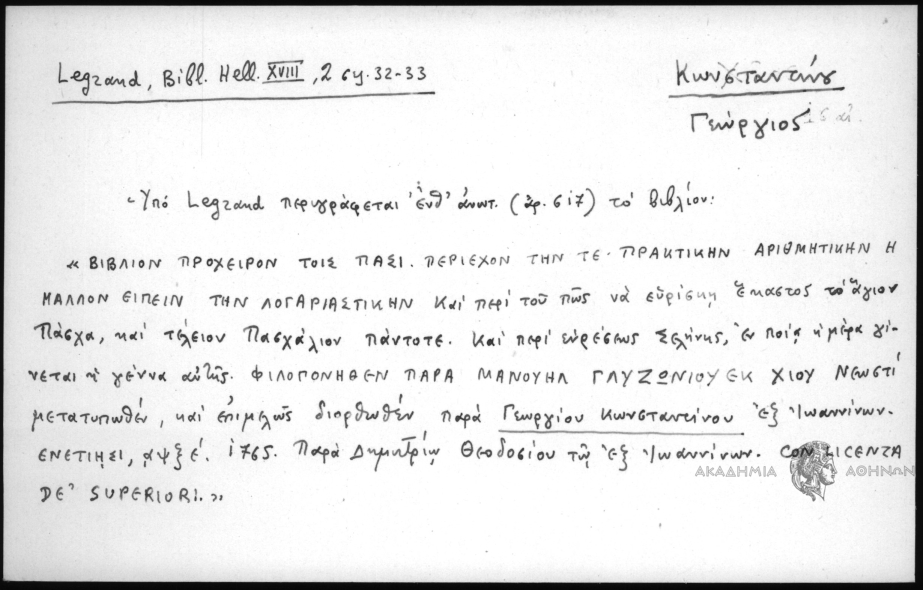 Legrand, Bibl. Hell. XVIII, 2 σy. 32-33
Κωνσταντίνου
Γεώργιος
"Υπό Legrand περιγράφεται ἐνθ' ἀνωτ. (ἀρ. 617) τό βιβλίον:
« ΒΙΒΛΙΟΝ ΠΡΟΧΕΙΡΟΝ ΤΟΙΣ ΠΑΣΙ. ΠΕΡΙΕΧΟΝ ΤΗΝ ΤΕ ΠΡΑΚΤΙΚΗΝ ΑΡΙΘΜΗΤΙΚΗΝ Η
ΜΑΛΛΟΝ ΕΙΠΕΙΝ ΤΗΝ ΛΟΓΑΡΙΑΣΤΙΚΗΝ Καί περί τοῦ πῶς νά εὑρίσκῃ ἕκαστος τό ἅγιον
Πάσχα, καί τέλειον Πασχάλιον πάντοτε. Καί περί εὑρέσεως Σελήνης, ἐν ποίᾳ ἡμέρᾳ γί-
νεται ἡ γέννα αὐτῆς. ΦΙΛΟΠΟΝΗΘΕΝ ΠΑΡΑ ΜΑΝΟΥΗΛ ΓΛΥΖΩΝΙΟΥ ΕΚ ΧΙΟΥ Νεωστί
μετατυπωθέν, καί ἐπιμελῶς διορθωθέν παρά Γεωργίου Κωνσταντίνου ἐξ Ἰωαννίνων.
ΕΝΕΤΙΗΣΙ, αψξέ. 1765. Παρά Δημητρίῳ Θεοδοσίου τῷ ἐξ Ἰωαννίνων. CON LICENZA
DE' SUPERIORI.»
ΑΚΑΔΗΜΙΑ ΑΘΗΝΩΝ